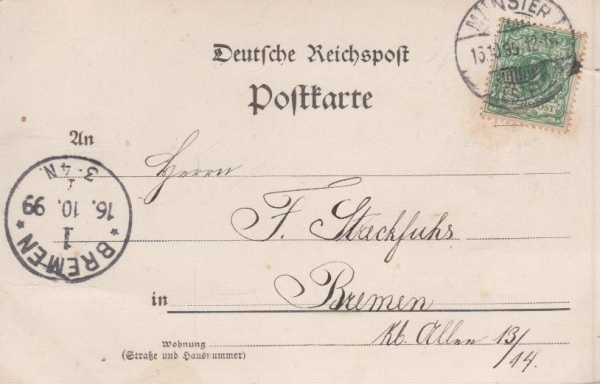 MÜNSTER
Deutsche Reichspost
Postkarte
An
Herrn
F. Streckfuhs
in Bremen
Kl. Allee 13/14.
Wohnung
(Straße und Hausnummer)
BREMEN
1
16. 10. 99
3-4 N.